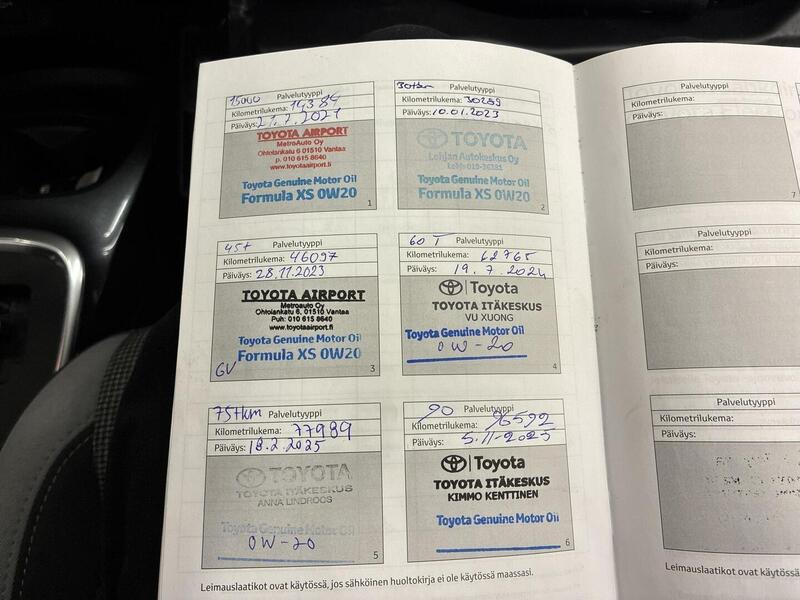 15000 Palvelutyyppi
Kilometrilukema: 14384
Päiväys: 21.7.2021
TOYOTA AIRPORT
MetroAuto Oy
Ohtolankatu 6 01510 Vantaa
p. 010 615 8640
www.toyotaairport.fi
Toyota Genuine Motor Oil
Formula XS 0W20
1
30tkm Palvelutyyppi
Kilometrilukema: 30259
Päiväys: 10.01.2023
TOYOTA
Lohjan Autokeskus Oy
Toyota Genuine Motor Oil
Formula XS 0W20
2
45t Palvelutyyppi
Kilometrilukema: 46097
Päiväys: 28.11.2023
TOYOTA AIRPORT
Metroauto Oy
Ohtolankatu 6, 01510 Vantaa
Puh: 010 615 8640
www.toyotaairport.fi
Toyota Genuine Motor Oil
Formula XS 0W20
GV
3
60 T Palvelutyyppi
Kilometrilukema: 62765
Päiväys: 19.7.2024
Toyota
TOYOTA ITÄKESKUS
VU XUONG
Toyota Genuine Motor Oil
0W-20
4
75tkm Palvelutyyppi
Kilometrilukema: 77989
Päiväys: 18.2.2025
TOYOTA
TOYOTA ITÄKESKUS
ANNA LINDROOS
Toyota Genuine Motor Oil
0W-20
5
90 Palvelutyyppi
Kilometrilukema: 96592
Päiväys: 5.11-2025
Toyota
TOYOTA ITÄKESKUS
KIMMO KENTTINEN
Toyota Genuine Motor Oil
6
Leimauslaatikot ovat käytössä, jos sähköinen huoltokirja ei ole käytössä maassasi.
Palvelutyyppi
Kilometrilukema:
Päiväys:
7
Palvelutyyppi
Kilometrilukema:
Päiväys:
Palvelutyyppi
Kilometrilukema:
Päiväys:
Leimauslaatikot ovat käytössä,